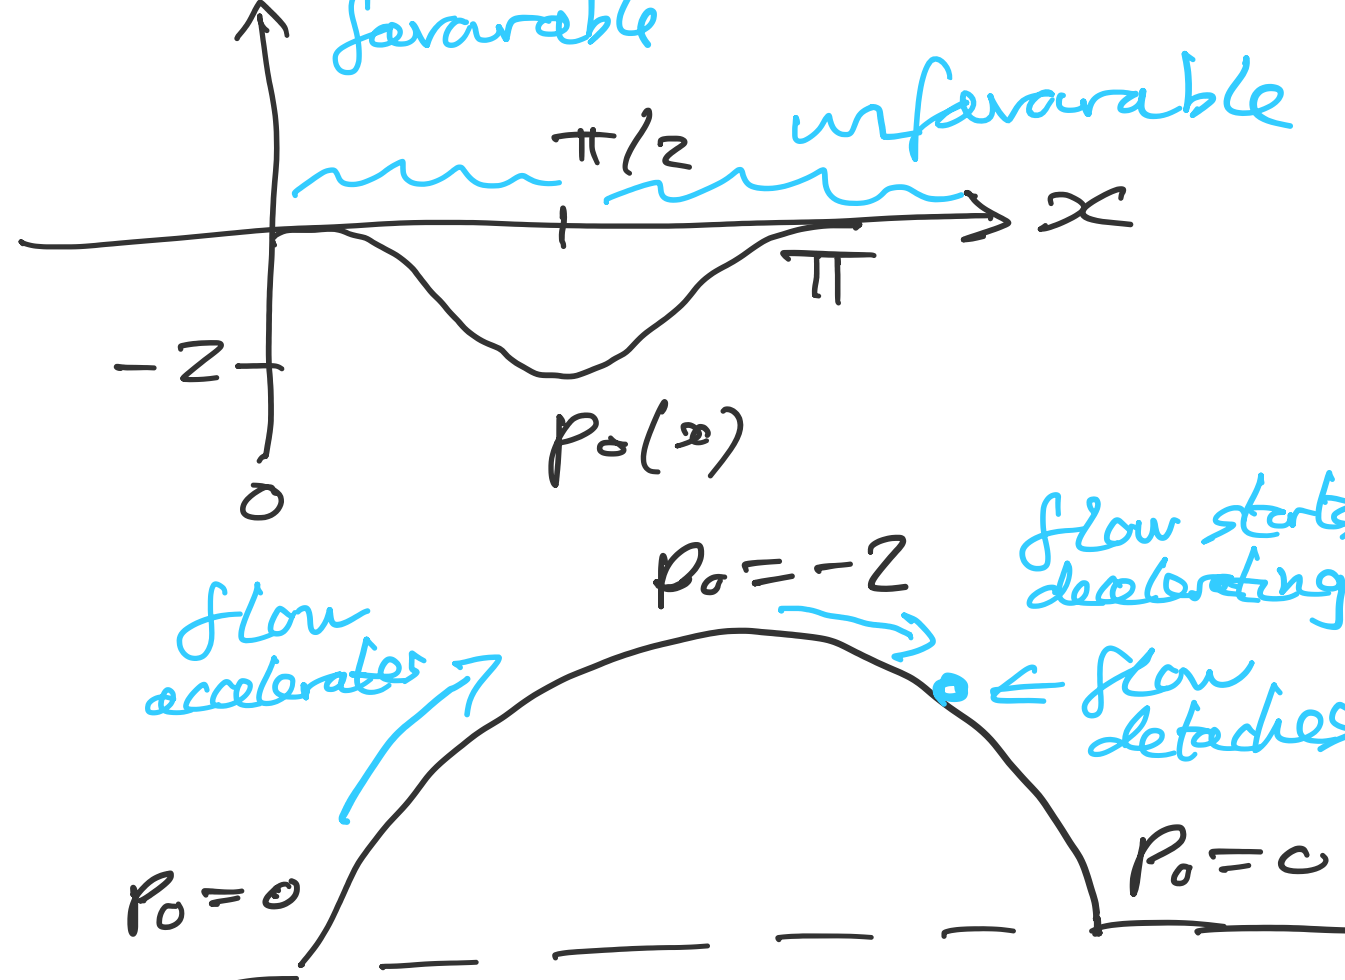 favourable
unfavourable
π/2
x
π
-2
p₀(x)
0
flow starts
decelerating
p₀ = -2
flow
accelerates
← flow
detaches
p₀ = 0
p₀ = 0